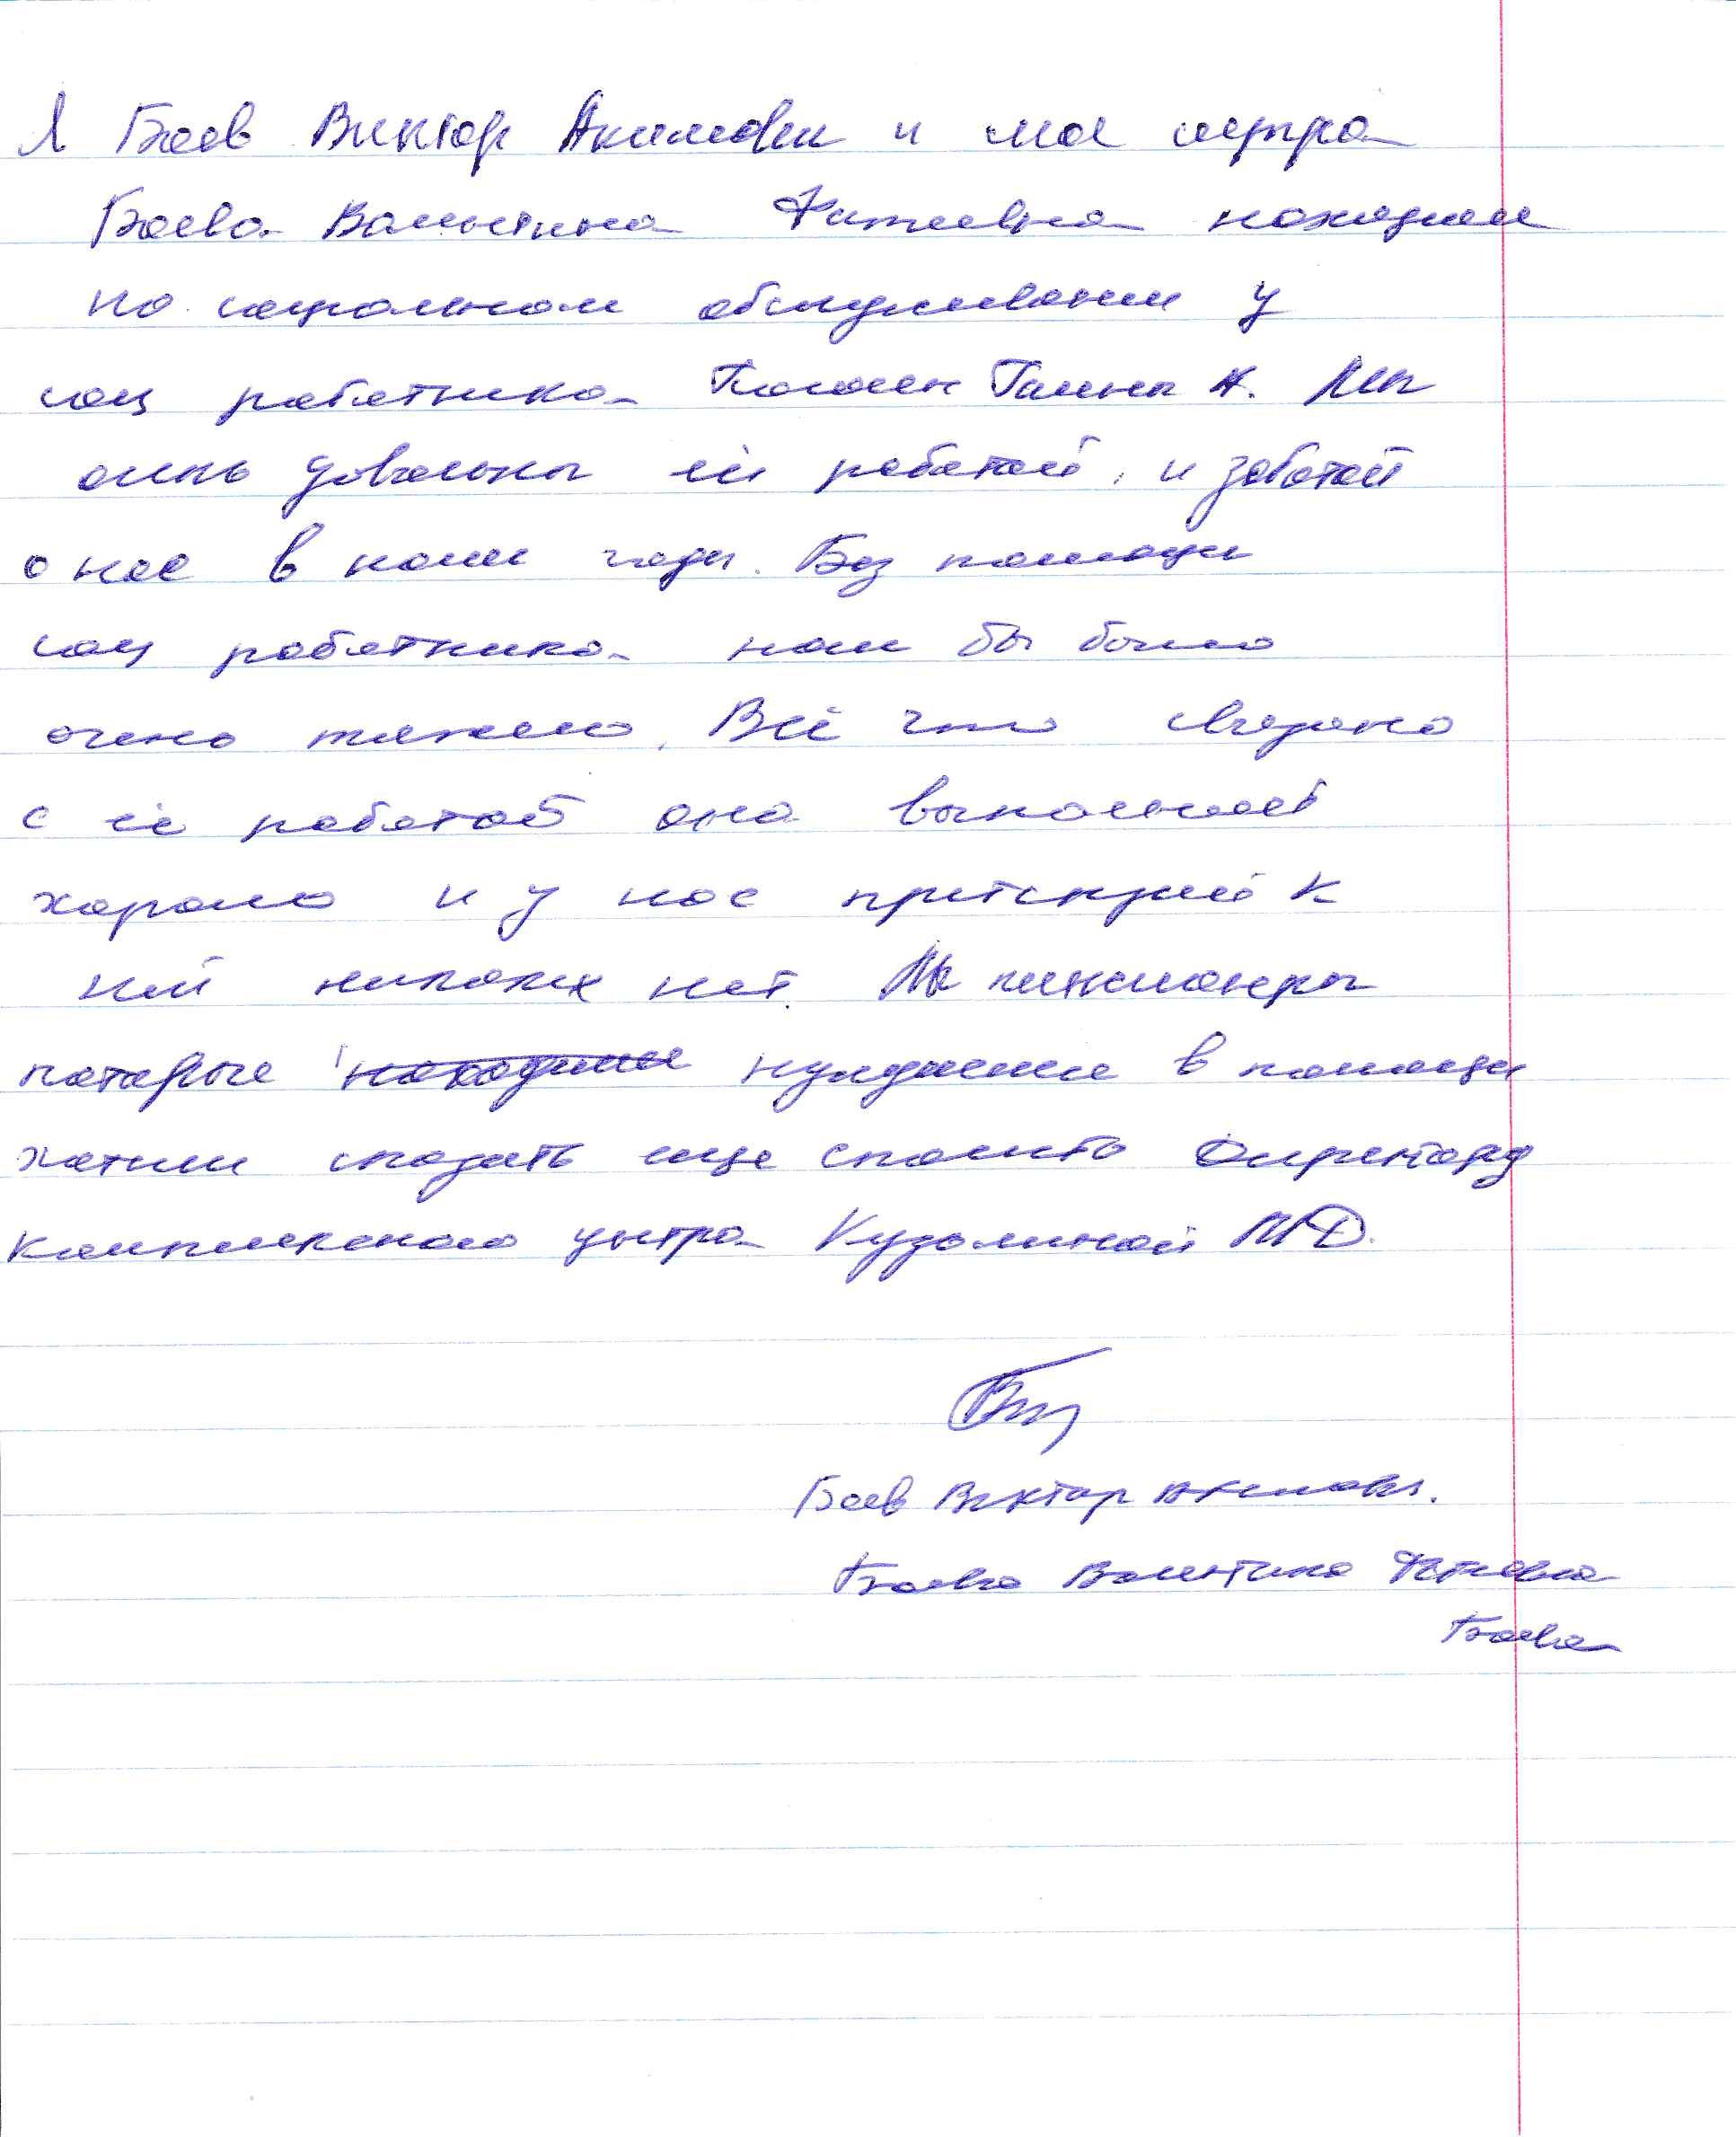 Я Баев Виктор Акимович и моя сестра
Баева Валентина Фатеевна находимся
на социальном обслуживании у
соц работника Галины А. Мы
очень довольны её работой, и заботой
о нас в наши годы. Без помощи
соц работника нам бы было
очень тяжело. Всё что связано
с её работой она выполняет
хорошо и у нас претензией к
ней никаких нет. Мы пенсионеры
которые находимся нуждаемся в помощи
хотим сказать еще спасибо Директору
Комплексного центра Кузьминой М Д.
Баев Виктор Акимович.
Баева Валентина Фатеевна
Баева